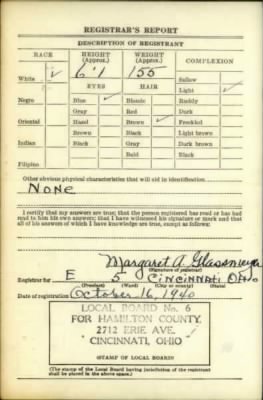 REGISTRAR'S REPORT
DESCRIPTION OF REGISTRANT
RACE HEIGHT (Approx.) WEIGHT (Approx.) COMPLEXION
White ✓ 6'1 155 Sallow
EYES HAIR Light ✓
Negro Blue ✓ Blonde Ruddy
Gray Red Dark
Oriental Hazel Brown ✓ Freckled
Brown Black Light brown
Indian Black Gray Dark brown
Bald Black
Filipino
Other obvious physical characteristics that will aid in identification
NONE
I certify that my answers are true; that the person registered has read or has had
read to him his own answers; that I have witnessed his signature or mark and that
all of his answers of which I have knowledge are true, except as follows:
Margaret A. Glassmeyer
(Signature of registrar)
Registrar for E 5 CINCINNATI OHIO
(Precinct) (Ward) (City or county) (State)
Date of registration October 16, 1940
LOCAL BOARD No. 6
FOR HAMILTON COUNTY
2712 ERIE AVE.
CINCINNATI, OHIO
(STAMP OF LOCAL BOARD)
(The stamp of the Local Board having jurisdiction of the registrant
shall be placed in the above space.)